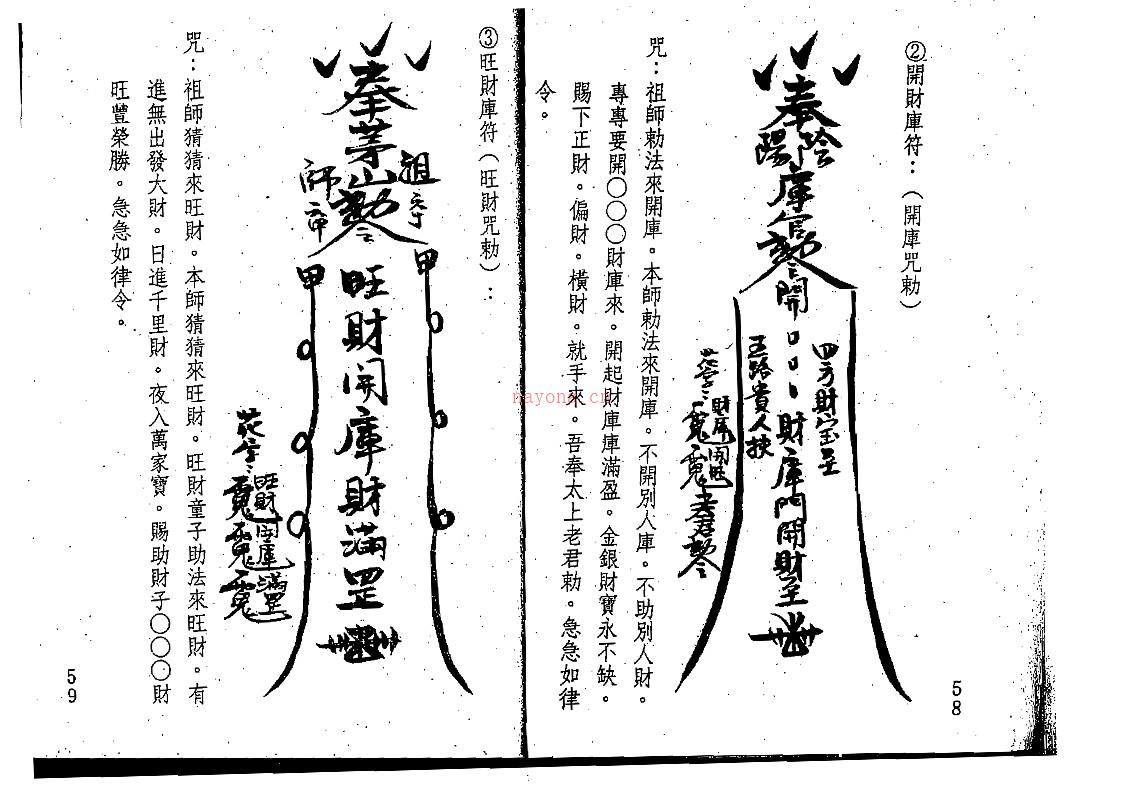 ②開財庫符：（開庫咒勅）
奉
陰陽
庫官勅令
開
財庫門開財至
四方財宝至
五路貴人扶
財庫開旺
老君勅令
咒：祖師勅法來開庫。本師勅法來開庫。不開別人庫。不助別人財。
專專要開〇〇〇財庫來。開起財庫庫滿盈。金銀財寶永不缺。
賜下正財。偏財。橫財。就手來。吾奉太上老君勅。急急如律
令。
58
③旺財庫符（旺財咒勅）：
奉茅山勅令
祖
師
甲
甲
旺財開庫財滿罡
旺財開庫滿罡
咒：祖師猜猜來旺財。本師猜猜來旺財。旺財童子助法來旺財。有
進無出發大財。日進千里財。夜入萬家寶。賜助財子〇〇〇財
旺豐榮勝。急急如律令。
59